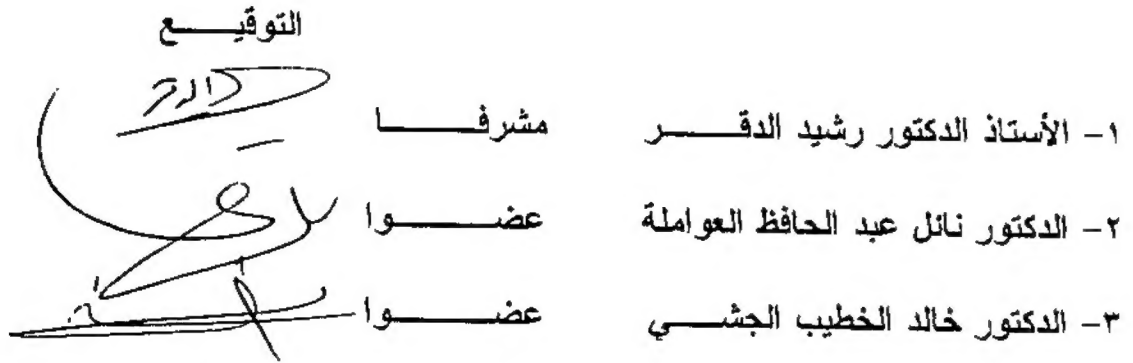 التوقيـــع
١- الأستاذ الدكتور رشيد الدقـــر مشرفـــا
٢- الدكتور نائل عبد الحافظ العواملة عضـــوا
٣- الدكتور خالد الخطيب الجشـــي عضـــوا